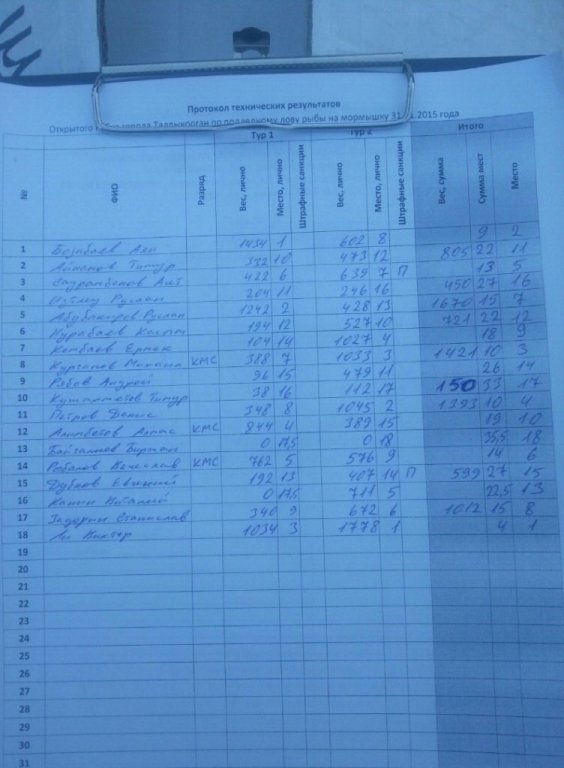 Протокол технических результатов
Открытого города Талдыкорган по подледному лову рыбы на мормышку 2015 года
Тур 1 Тур 2 Итого
№ ФИО Разряд Вес, лично Место, лично Штрафные санкции Вес, лично Место, лично Штрафные санкции Вес, сумма Сумма мест Место
1 1434 1 602 8 9 2
2 Тимур 332 10 473 12 805 22 11
3 422 6 639 7 П 13 5
4 Руслан 204 11 246 16 450 27 16
5 Руслан 1242 2 428 13 1670 15 7
6 194 12 527 10 721 22 12
7 Ермек 104 14 1027 4 18 9
8 КМС 388 7 1033 3 1421 10 3
9 Рябов Андрей 96 15 479 11 26 14
10 Тимур 38 16 112 17 150 33 17
11 Петров Денис 348 8 1045 2 1393 10 4
12 КМС 844 4 389 15 19 10
13 0 17,5 0 18 35,5 18
14 Вячеслав КМС 762 5 576 9 14 6
15 Евгений 192 13 407 14 П 599 27 15
16 Виталий 0 17,5 711 5 22,5 13
17 Станислав 340 9 672 6 1012 15 8
18 Ли Виктор 1034 3 1778 1 4 1
19
20
21
22
23
24
25
26
27
28
29
30
31